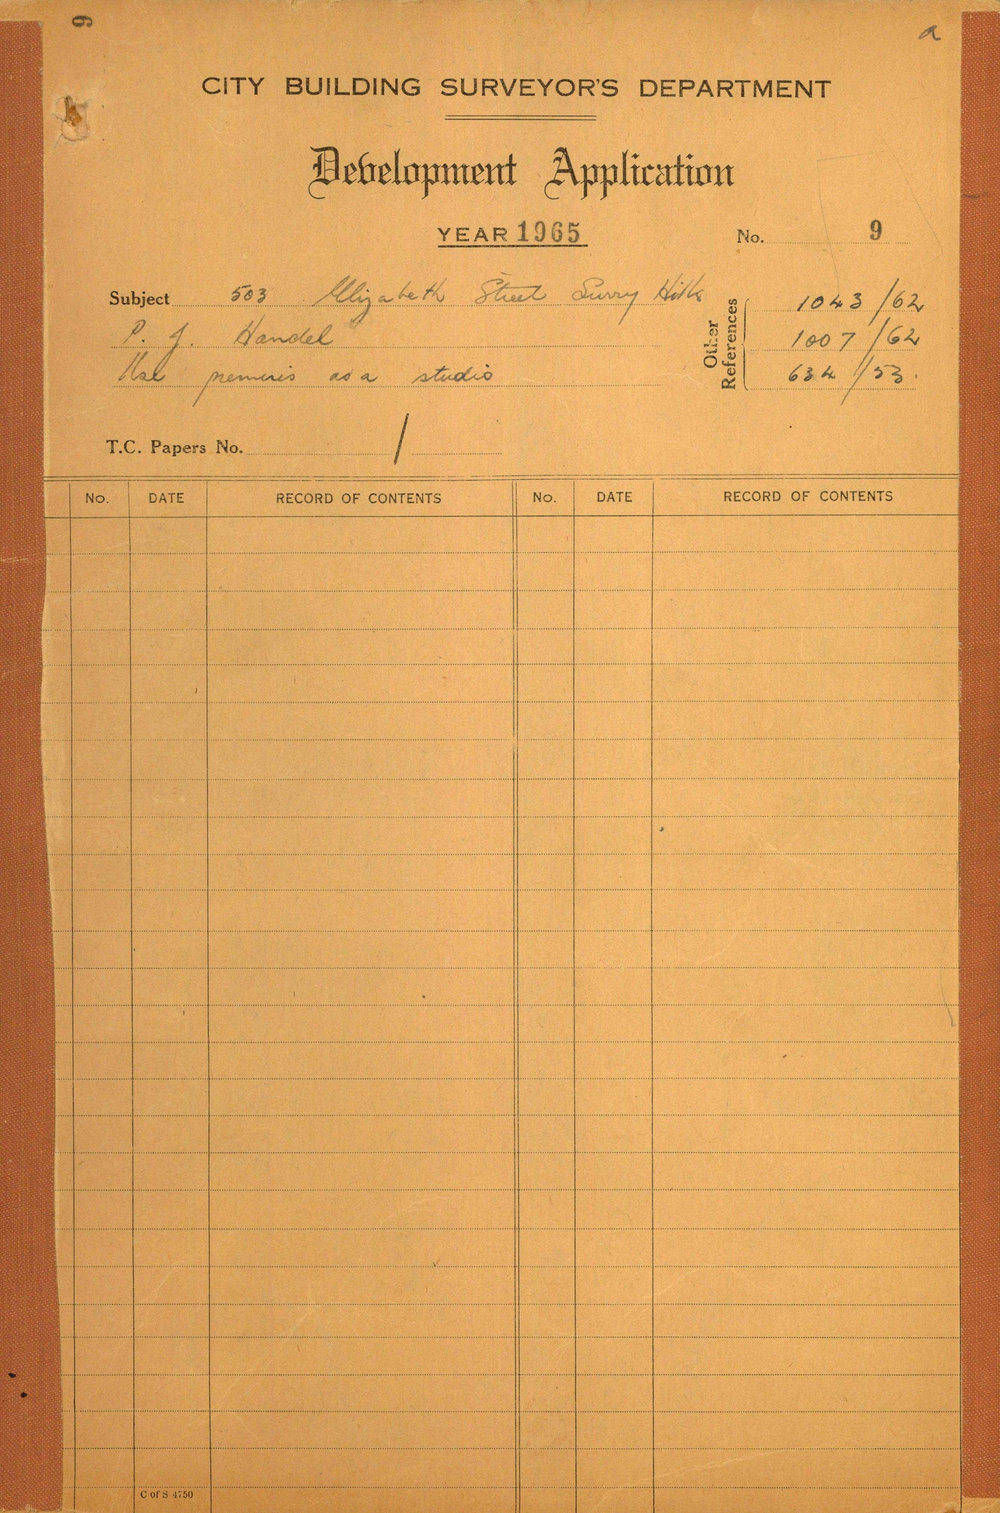 9
a
CITY BUILDING SURVEYOR'S DEPARTMENT
Development Application
YEAR 1965
No. 9
Subject 503 Elizabeth Street Surry Hills
P. J. Handel
Use premises as a studio
Other References
1043/62
1007/62
634/53.
T.C. Papers No. /
No. DATE RECORD OF CONTENTS No. DATE RECORD OF CONTENTS
C of S 4750